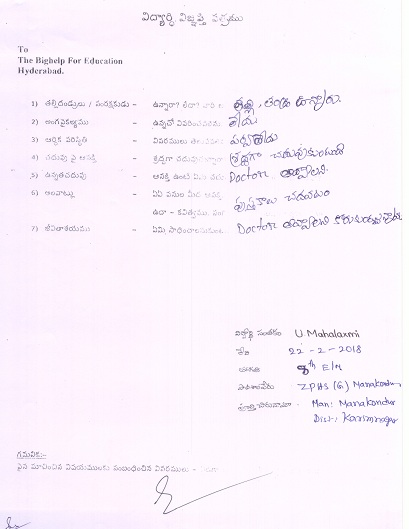 విద్యార్థి విజ్ఞప్తి పత్రము
To
The Bighelp For Education
Hyderabad.
1) తల్లిదండ్రులు / సంరక్షకుడు - ఉన్నారా? లేరా? తల్లి, తండ్రి ఉన్నారు.
2) అంగవైకల్యము - ఉన్నచో వివరించవలెను లేదు
3) ఆర్థిక పరిస్థితి - వివరములు తెలుపవలెను పర్వాలేదు
4) చదువు పై ఆసక్తి - శ్రద్ధగా చదువుతున్నారా శ్రద్ధగా చదువుకుంటుంది
5) ఉన్నతచదువు - ఆసక్తి ఉంటే ఏమి Doctor అవ్వాలని.
6) అలవాట్లు - ఏఏ పనుల మీద ఆసక్తి పుస్తకాలు చదవటం
ఉదా - కవిత్వము,
7) జీవితాశయము - ఏమి సాధించాలనుకుం Doctor అవ్వాలని కోరుకుంటున్నాను
విద్యార్థి సంతకం U. Mahalaxmi
తేది 22-2-2018
తరగతి 8th E/M
పాఠశాలపేరు ZPHS (G) Manakondur
పూర్తి చిరునామా - Man: Manakondur
Dist: Karimnagar
గమనిక:-
పైన సూచించిన విషయములకు సంబంధించిన వివరములు